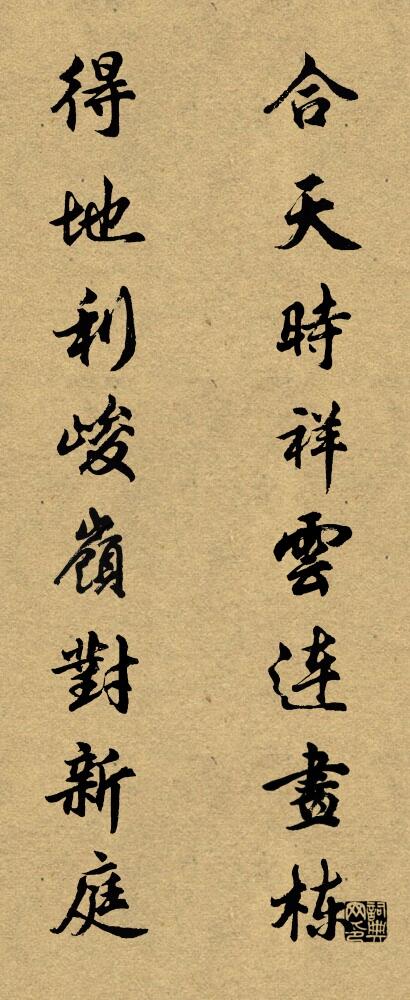 合天時祥雲连畫栋
得地利峻嶺對新庭
詞典网